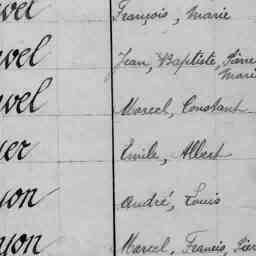 vel François, Marie
vel Jean, Baptiste, Pierre
Marie
vel Marcel, Constant
er Emile, Albert
yon André, Louis
yon Marcel, Francis, Pier